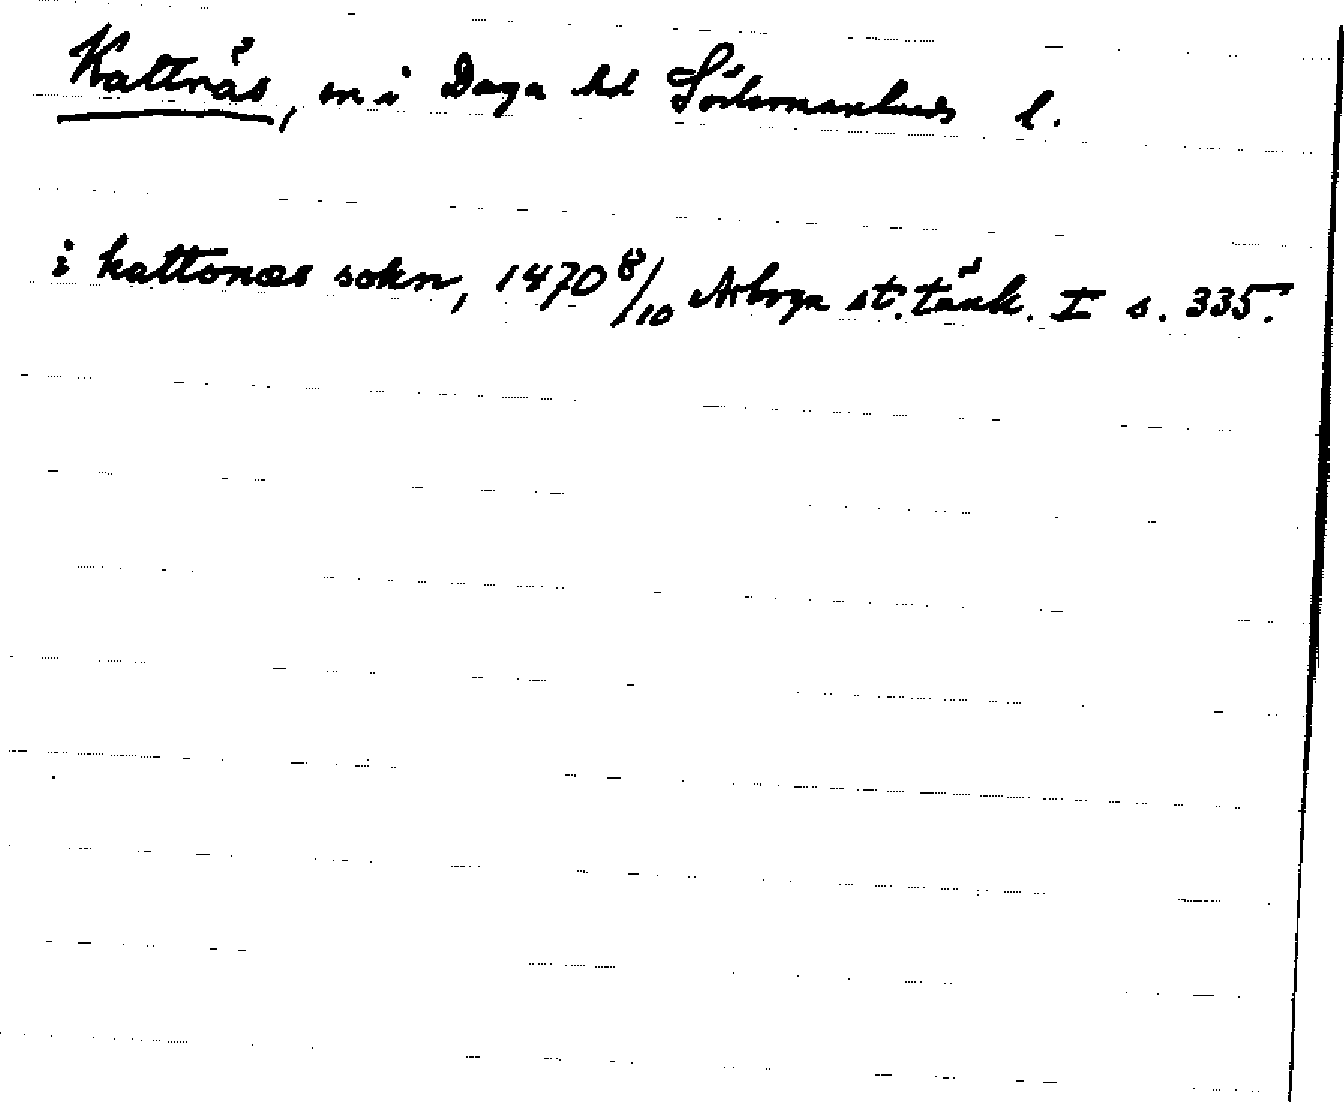 Kattnäs, sn i Daga hd Södermanlands l.
i kattonæs sokn, 1470 8/10 Arboga st.tänk. I s. 335.